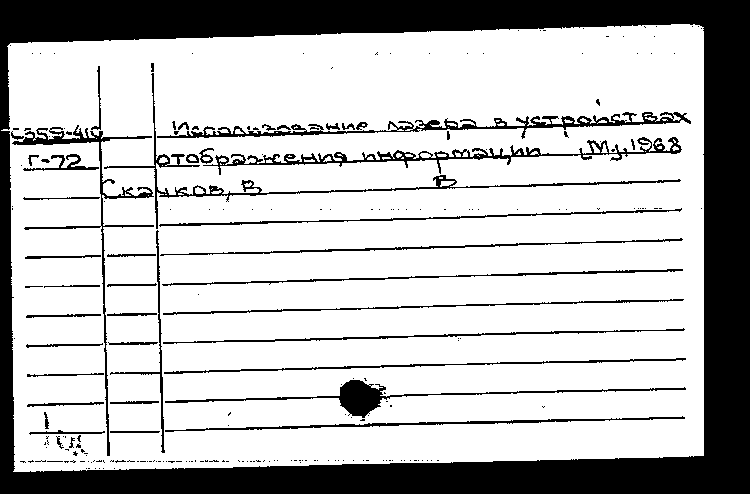 С359-410 Использование лазера в устройствах
Г-72 отображения информации М., 1968
Скачков, В В